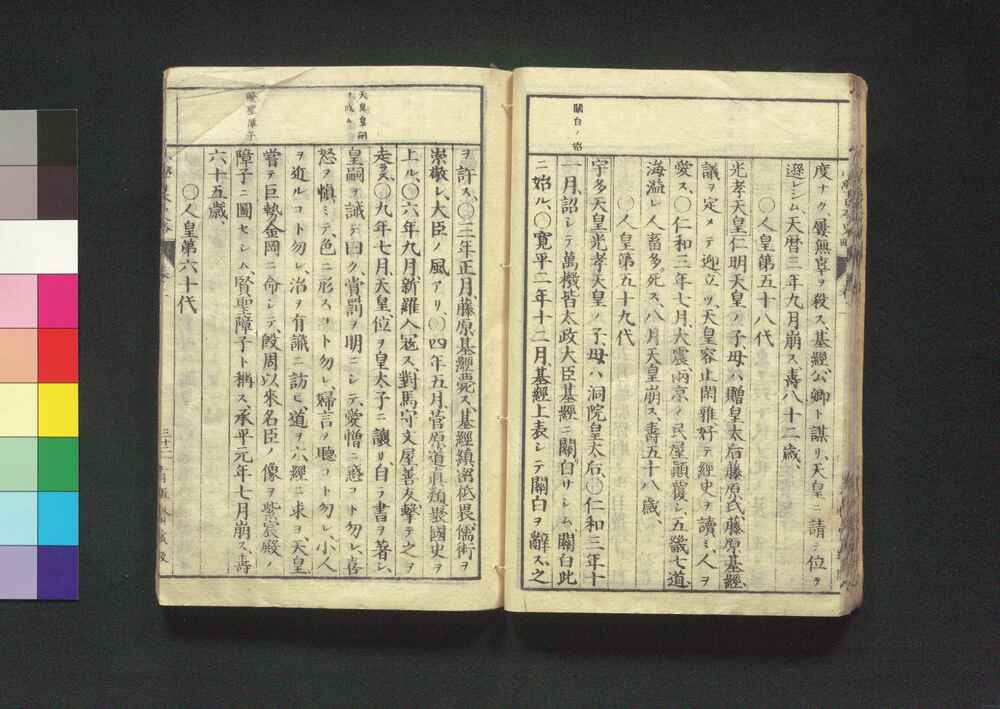 度ナク、屢無辜ヲ殺ス、基經、公卿ト謀リ、天皇ニ請テ位ヲ
遜レシム、天暦三年九月崩ス、壽八十二歳、
〇人皇第五十八代
光孝天皇仁明天皇ノ子、母ハ贈皇太后藤原氏、藤原基經、
議ヲ定メテ迎立ツ、天皇容止閑雅、好テ經史ヲ讀ミ、人ヲ
愛ス、〇仁和三年七月、大震、兩京ノ民屋顛覆シ、五畿七道、
海溢レ人畜多死ス、八月天皇崩ス、壽五十八歳、
〇人皇第五十九代
宇多天皇光孝天皇ノ子、母ハ洞院皇太后、〇仁和三年十
一月、詔シテ萬機皆太政大臣基經ニ關白サレム、關白此
ニ始ル、〇寛平二年十二月、基經上表シテ關白ヲ辭ス、之
關白ノ始
ヲ許ス、〇三年正月、藤原基經薨ス、基經縝密低畏、儒術ヲ
崇敬シ、大臣ノ風アリ、〇四年五月、菅原道眞類聚國史ヲ
上ル、〇六年九月新羅入寇ス、對馬守文屋善友擊テ之ヲ
走ラス、〇九年七月、天皇位ヲ皇太子ニ讓リ自ラ書ヲ著シ、
皇嗣ヲ誡テ曰ク、賞罰ヲ明ニシテ、愛憎ニ惑コト勿レ、喜
怒ヲ愼ミテ、色ニ形スコト勿レ、婦言ヲ聽コト勿レ、小人
ヲ近ルコト勿レ、治ヲ有識ニ訪ヒ道ヲ六經ニ求ヨ、天皇
嘗テ巨勢金岡ニ命シテ、殷周以來名臣ノ像ヲ紫宸殿ノ
障子ニ圖セシム、賢聖障子ト稱ス、承平元年七月崩ス、壽
六十五歳、
〇人皇第六十代
天皇皇嗣
ヲ戒ム
賢聖障子
三十二